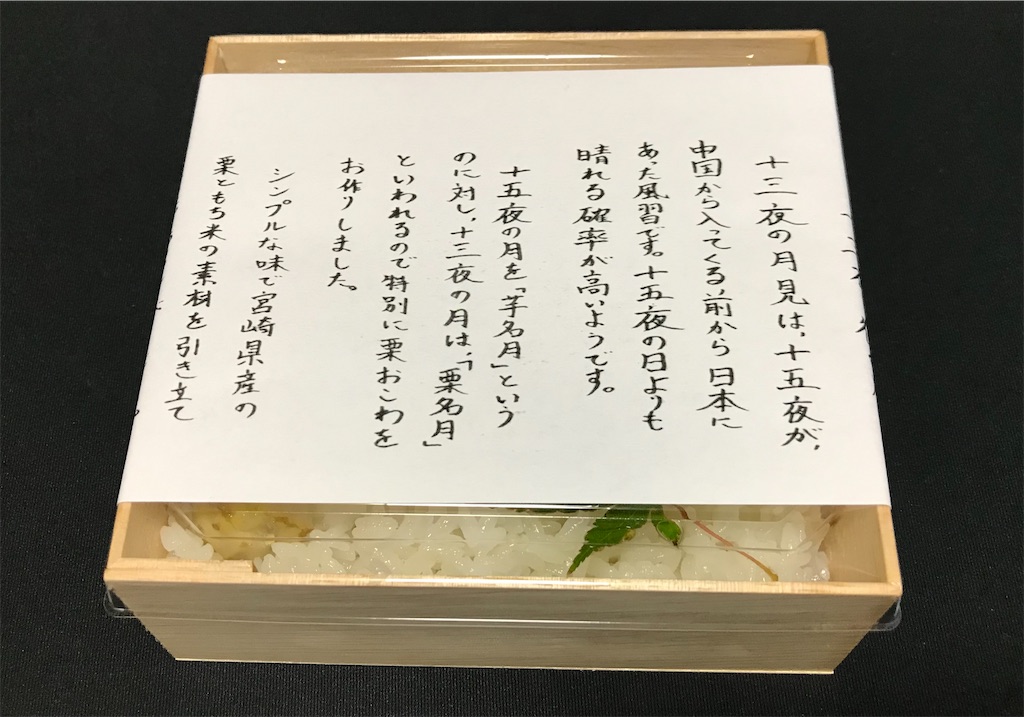 十三夜の月見は、十五夜が、
中国から入ってくる前から日本に
あった風習です。十五夜の日よりも
晴れる確率が高いようです。
十五夜の月を「芋名月」という
のに対し、十三夜の月は、「栗名月」
といわれるので特別に栗おこわを
お作りしました。
シンプルな味で宮崎県産の
栗ともち米の素材を引き立て